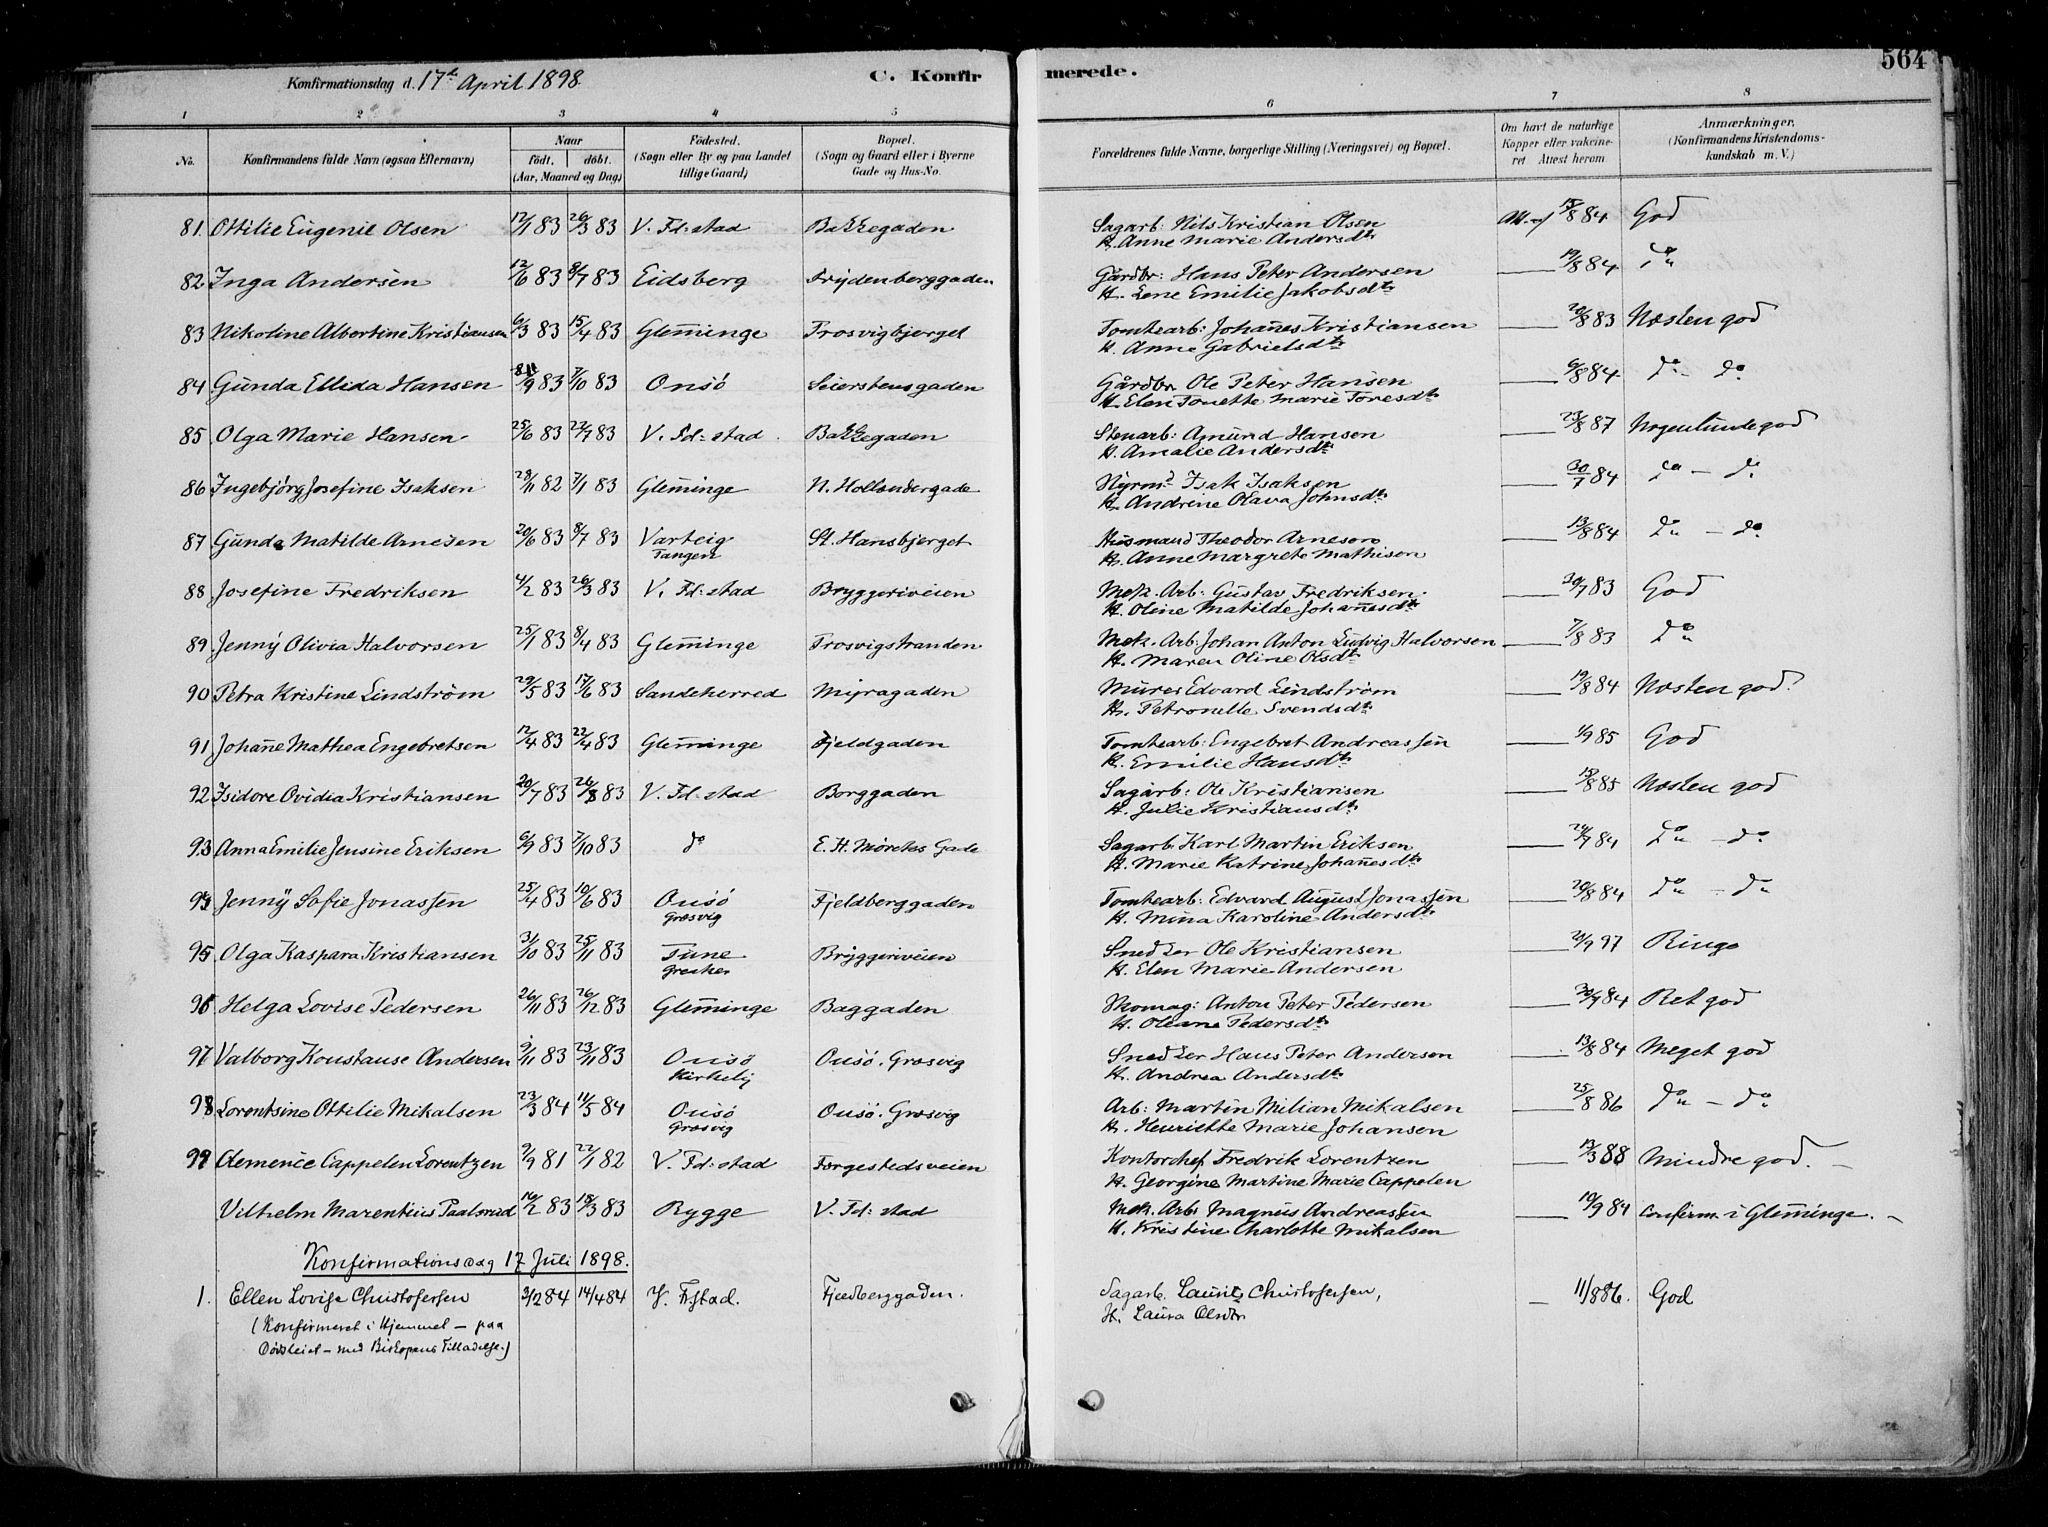 Konfirmationsdag d. 17de April 1898. C. Konfirmerede. 564
1 2 3 4 5 6 7 8
No. Konfirmandens fulde Navn (ogsaa Efternavn) Naar født, døbt. (Aar, Maaned og Dag) Fødested. (Sogn eller By og paa Landet tillige Gaard) Bopæl. (Sogn og Gaard eller i Byerne Gade og Hus-No. Forældrenes fulde Navne, borgerlige Stilling (Næringsvei) og Bopæl. Om havt de naturlige Kopper eller vakcineret Attest herom Anmærkninger, (Konfirmandens Kristendomskundskab m. V.)
81. Ottilie Eugenie Olsen 12/1 83 26/3 83 V. Fd:stad Bakkegaden Sagarb: Nils Kristian Olsen 15/8 84 God
H. Anne Marie Andersdtr
82 Inga Andersen 12/6 83 8/7 83 Eidsberg Frydenberggaden Gårdbr: Hans Peter Andersen 19/8 84 do
H. Lene Emilie Jakobsdtr
83 Nikoline Albertine Kristiansen 6/3 83 15/4 83 Glemminge Trosvigbjerget Tomtearb: Johannes Kristiansen 20/8 83 Næsten god
H. Anne Gabrielsdtr
84 Gunda Ellida Hansen /9 83 7/10 83 Onsö Seierstensgaden Gårdbr Ole Peter Hansen 6/8 84 do - do
H. Elen Tonette Marie Toresdtr
85 Olga Marie Hansen 25/6 83 22/7 83 V. Fd:stad Bakkegaden Stenarb: Amund Hansen 23/8 87 Nogenlunde god
H. Amalie Andersdtr
86 Ingebjørg Josefine Isaksen 28/11 82 7/1 83 Glemminge N. Hollendergade Styrmd Isak Isaksen 30/7 84 do - do
H. Andrine Olava Johnsdtr
87 Gunda Matilde Arnesen 20/6 83 8/7 83 Varteig St. Hansbjerget Husmand Theodor Arnesen 13/8 84 do - do
Tangen H. Anne Margrete Mathisen
88 Josefine Fredriksen 4/2 83 26/3 83 V. Fd:stad Bryggeriveien Mek. Arb: Gustav Fredriksen 30/7 83 God
H. Oline Matilde Johannesdtr
89 Jenny Olivia Halvorsen 25/1 83 8/4 83 Glemminge Trosvigstranden Mek. Arb: Johan Anton Ludvig Halvorsen 7/8 83 do
H. Maren Oline Olsdtr
90 Petra Kristine Lindström 29/5 83 17/6 83 Sandeherred Myragaden Murer Edvard Lindström 19/8 84 Næsten god.
H. Petronelle Svendsdtr
91 Johanne Mathea Engebretsen 12/4 83 22/4 83 Glemminge Fjeldgaden Tomtearb: Engebret Andreassen 1/9 85 God
H. Emilie Hansdtr
92 Isidore Ovidia Kristiansen 20/7 83 26/8 83 V. Fd:stad Borggaden Sagarb: Ole Kristiansen 18/8 85 Næsten god
H. Julie Kristiansdtr
93 Anna Emilie Jensine Eriksen 6/9 83 7/10 83 do E. H. Møretes Gade Sagarb Karl Martin Eriksen 84 do - do
H. Marie Katrine Johannesdtr
94 Jenny Sofie Jonassen 25/4 83 10/6 83 Onsö Fjeldberggaden Tomtearb: Edvard August Jonassen 20/8 84 do - do
Græsvig H. Mina Karoline Andersdtr
95 Olga Kaspara Kristiansen 31/10 83 25/11 83 Tune Bryggeriveien Snedker Ole Kristiansen 20/9 97 Ringe
Greaker H. Elen Marie Andersen
96 Helga Lovise Pedersen 26/11 83 26/12 83 Glemminge Baggaden Skomag: Anton Peter Pedersen 30/9 84 Ret god
H. Oleane Pedersdtr
97 Valborg Konstanse Andersen 9/11 83 23/11 83 Onsö Onsö. Græsvig Snedker Hans Peter Andersen 13/8 84 Meget god
Kirkeby H. Andrea Andersdtr
98 Lorentsine Ottilie Mikalsen 23/3 84 11/5 84 Onsö Onsö. Græsvig Arb: Martin Milian Mikalsen 25/8 86 do - do
Græsvig H. Henriette Marie Johansen
99 Clemence Cappelen Lorentzen 9/9 81 22/1 82 V. Fd:stad Færgestedsveien Kontorchef Fredrik Lorentzen 13/3 88 Mindre god. -
H. Georgine Martine Marie Cappelen
Vilhelm Marentius Paalsrud 16/2 83 18/3 83 Rygge V. Fd:stad Mek. Arb: Magnus Andreassen 10/9 84 Confirm. i Glemminge. -
H. Kristine Charlotte Mikalsen
Konfirmationsdag 17 Juli 1898.
1. Ellen Lovise Christofersen 3/2 84 14/4 84 V. F.stad. Fjeldberggaden. Sagarb. Laurits Christofersen, 11/8 86. God
(Konfirmeret i Hjemmet - paa H. Laura Olsdtr
Dødsleiet - med Biskopens Tilladelse.)